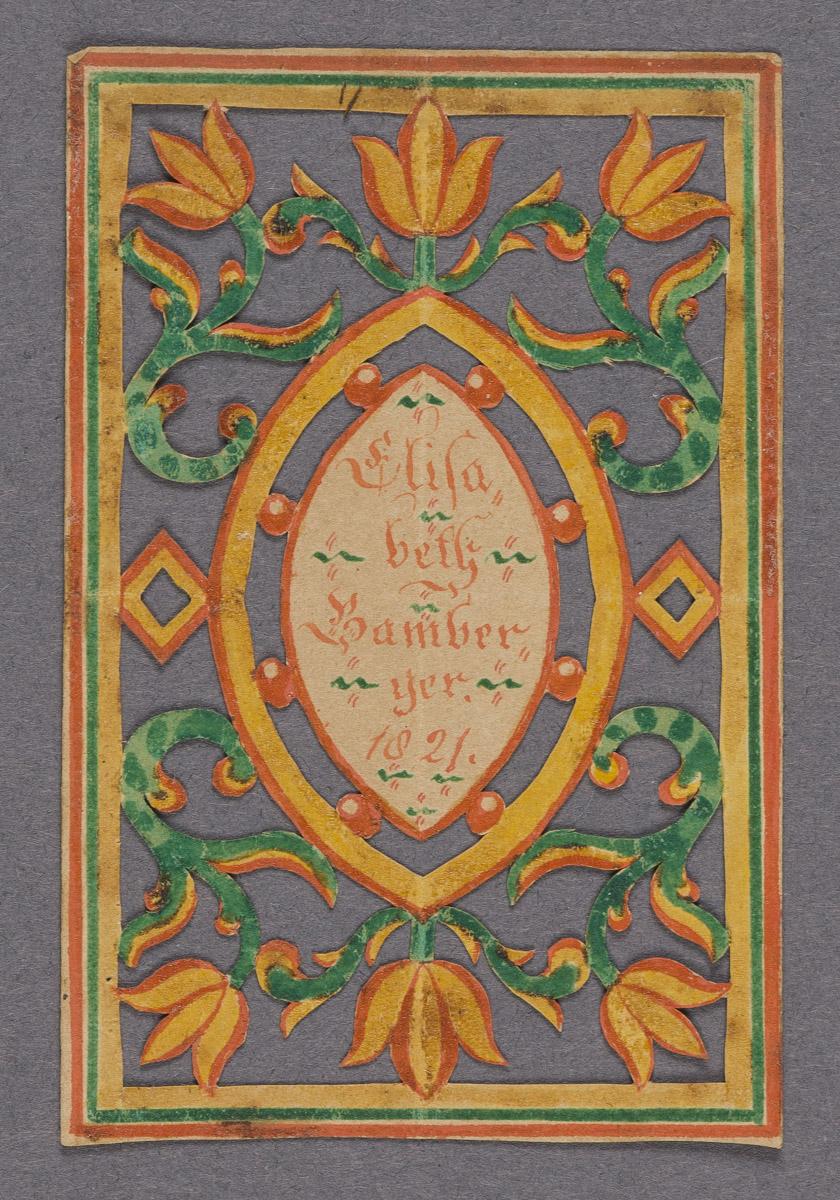 Elisa„
beth
Bamber„
ger.
1821.